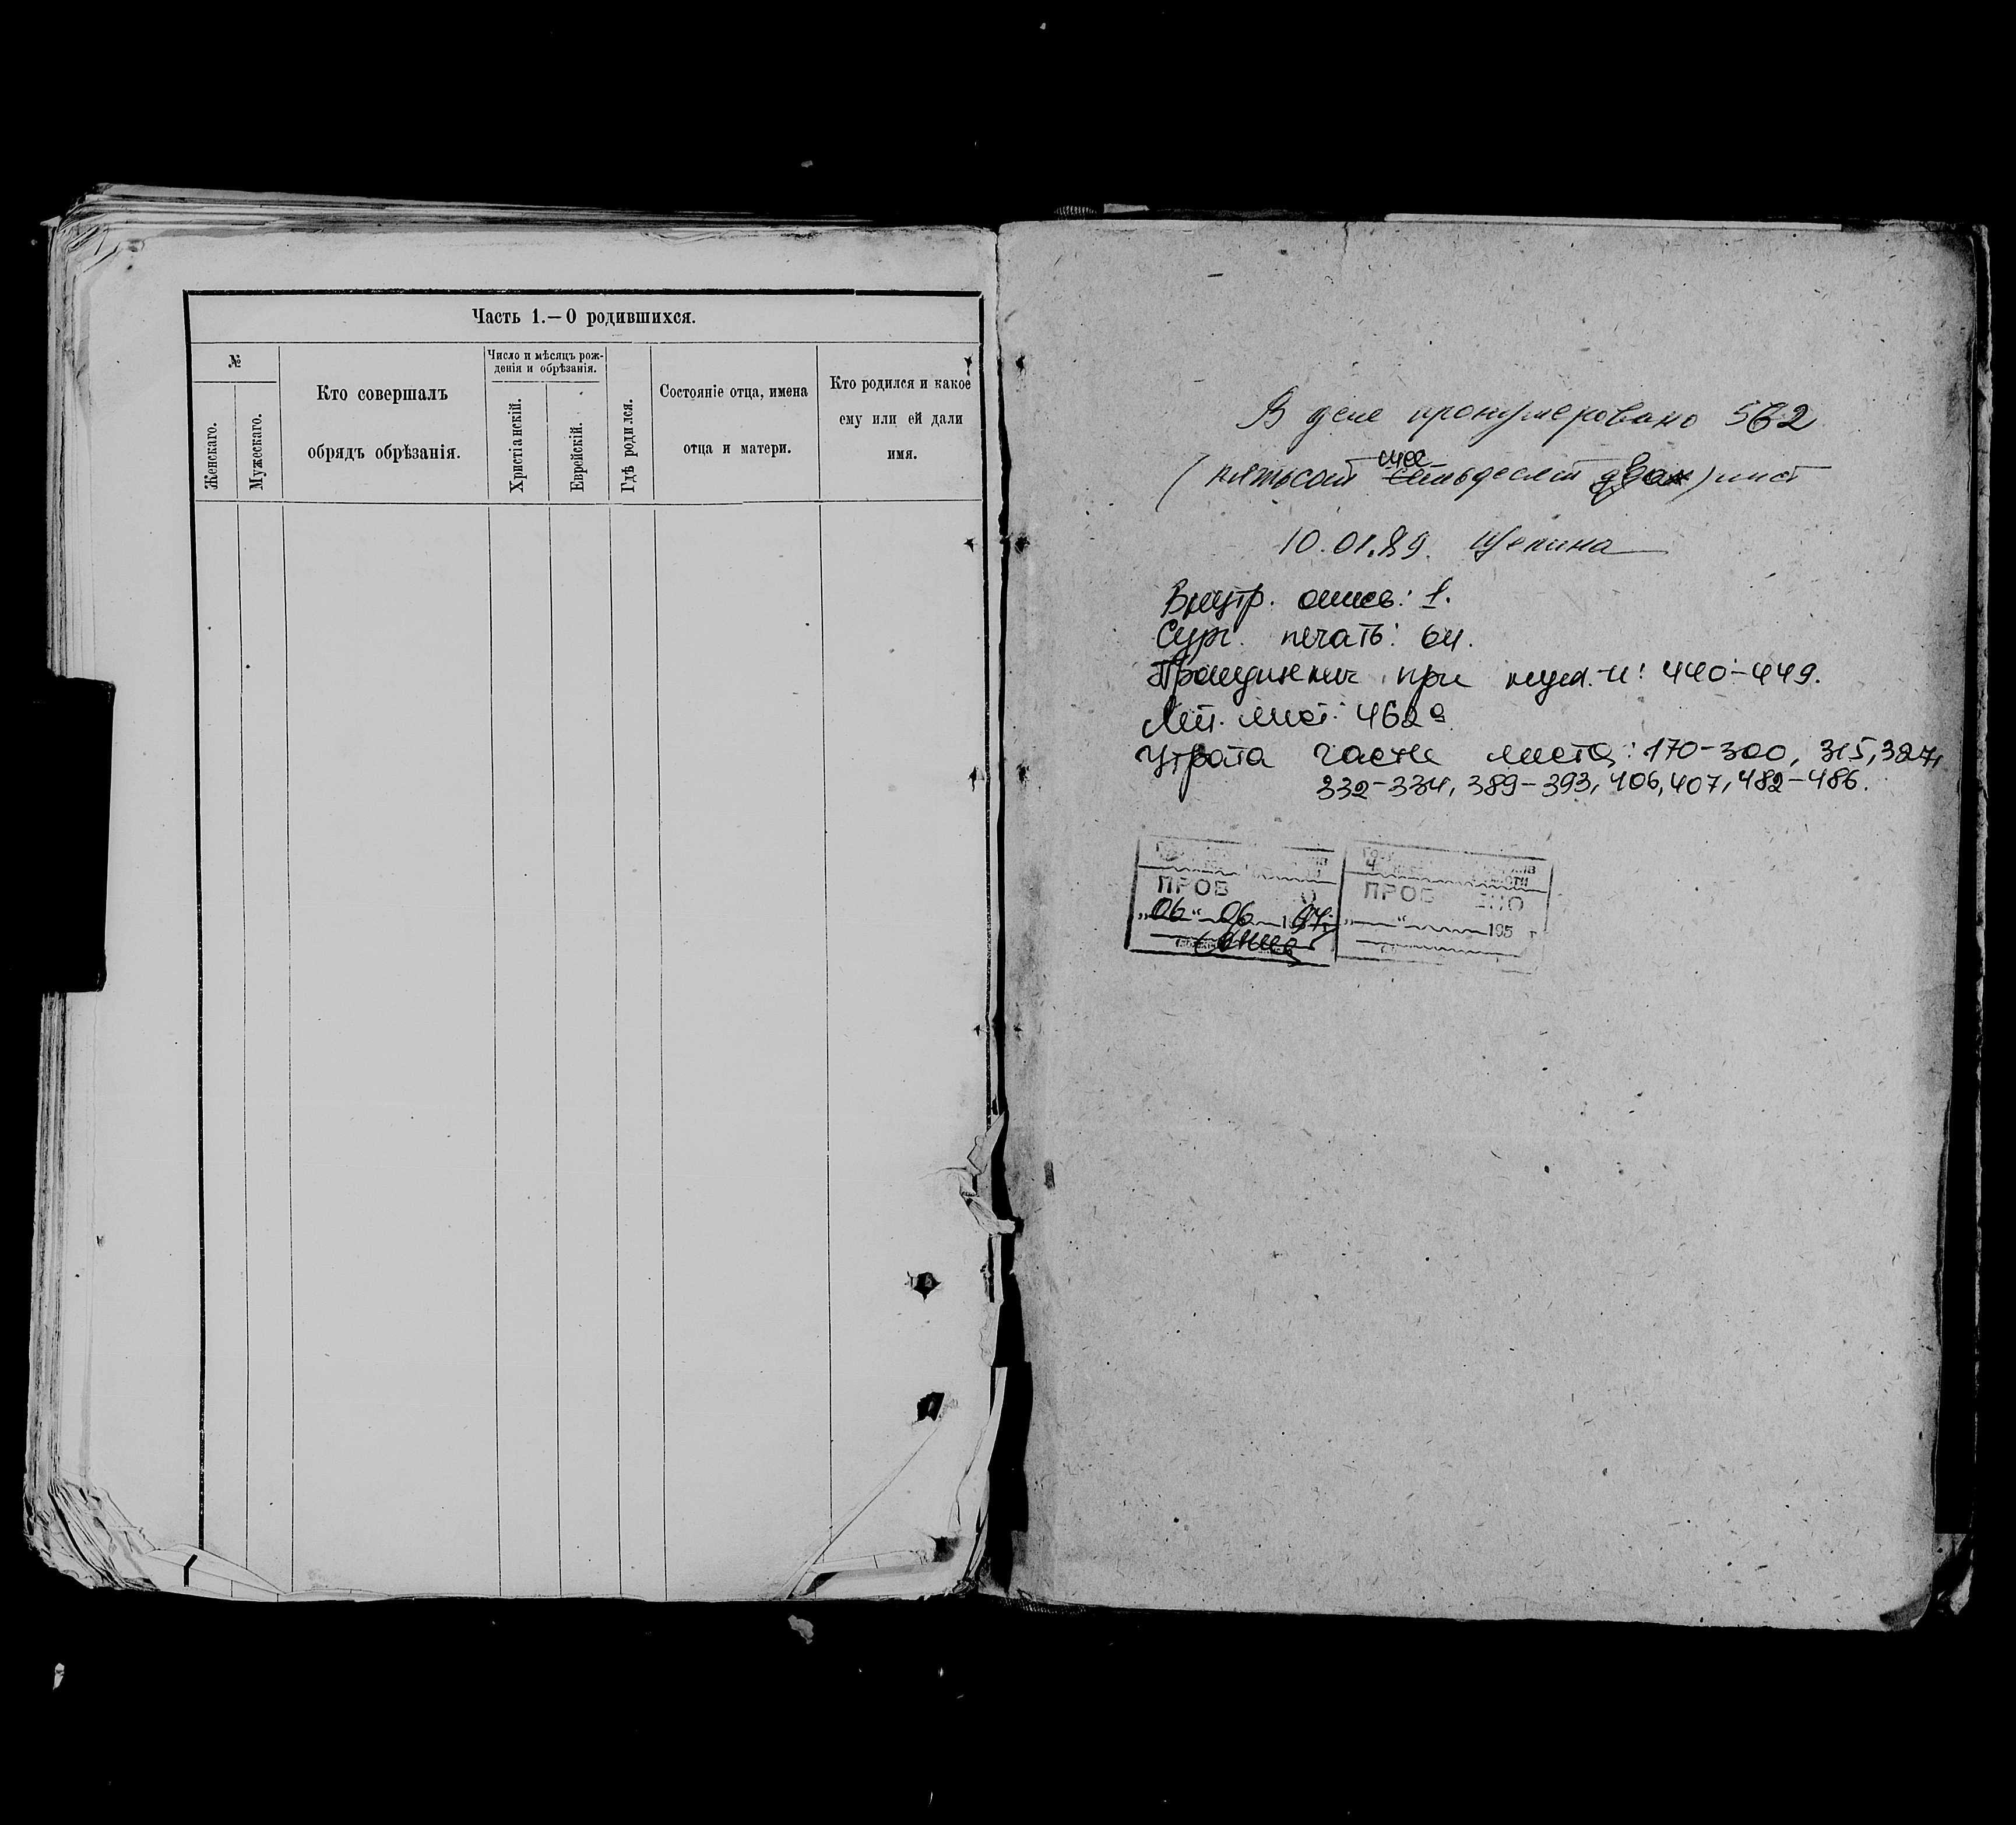 Часть 1.—О родившихся.
№
Женскаго.
Мужескаго.
Кто совершалъ
обрядъ обрѣзанія.
Число и мѣсяцъ рож-
денія и обрѣзанія.
Христіанскій.
Еврейскій.
Гдѣ родился.
Состояніе отца, имена
отца и матери.
Кто родился и какое
ему или ей дали
имя.
В деле пронумеровано 562
шес
(пятьсот семьдесят два) лист
10.01.89. Щепина
Внутр. опись: 1.
Сург. печать: 64.
Пропущены при нум-и: 440-449.
Лит. лист: 462а
Утрата части листа: 170-300, 315, 327,
332-334, 389-393, 406, 407, 482-486.
ПРОВ О
„06“ 06 1997
ПРОВ ЕНО
„ “ 195 г